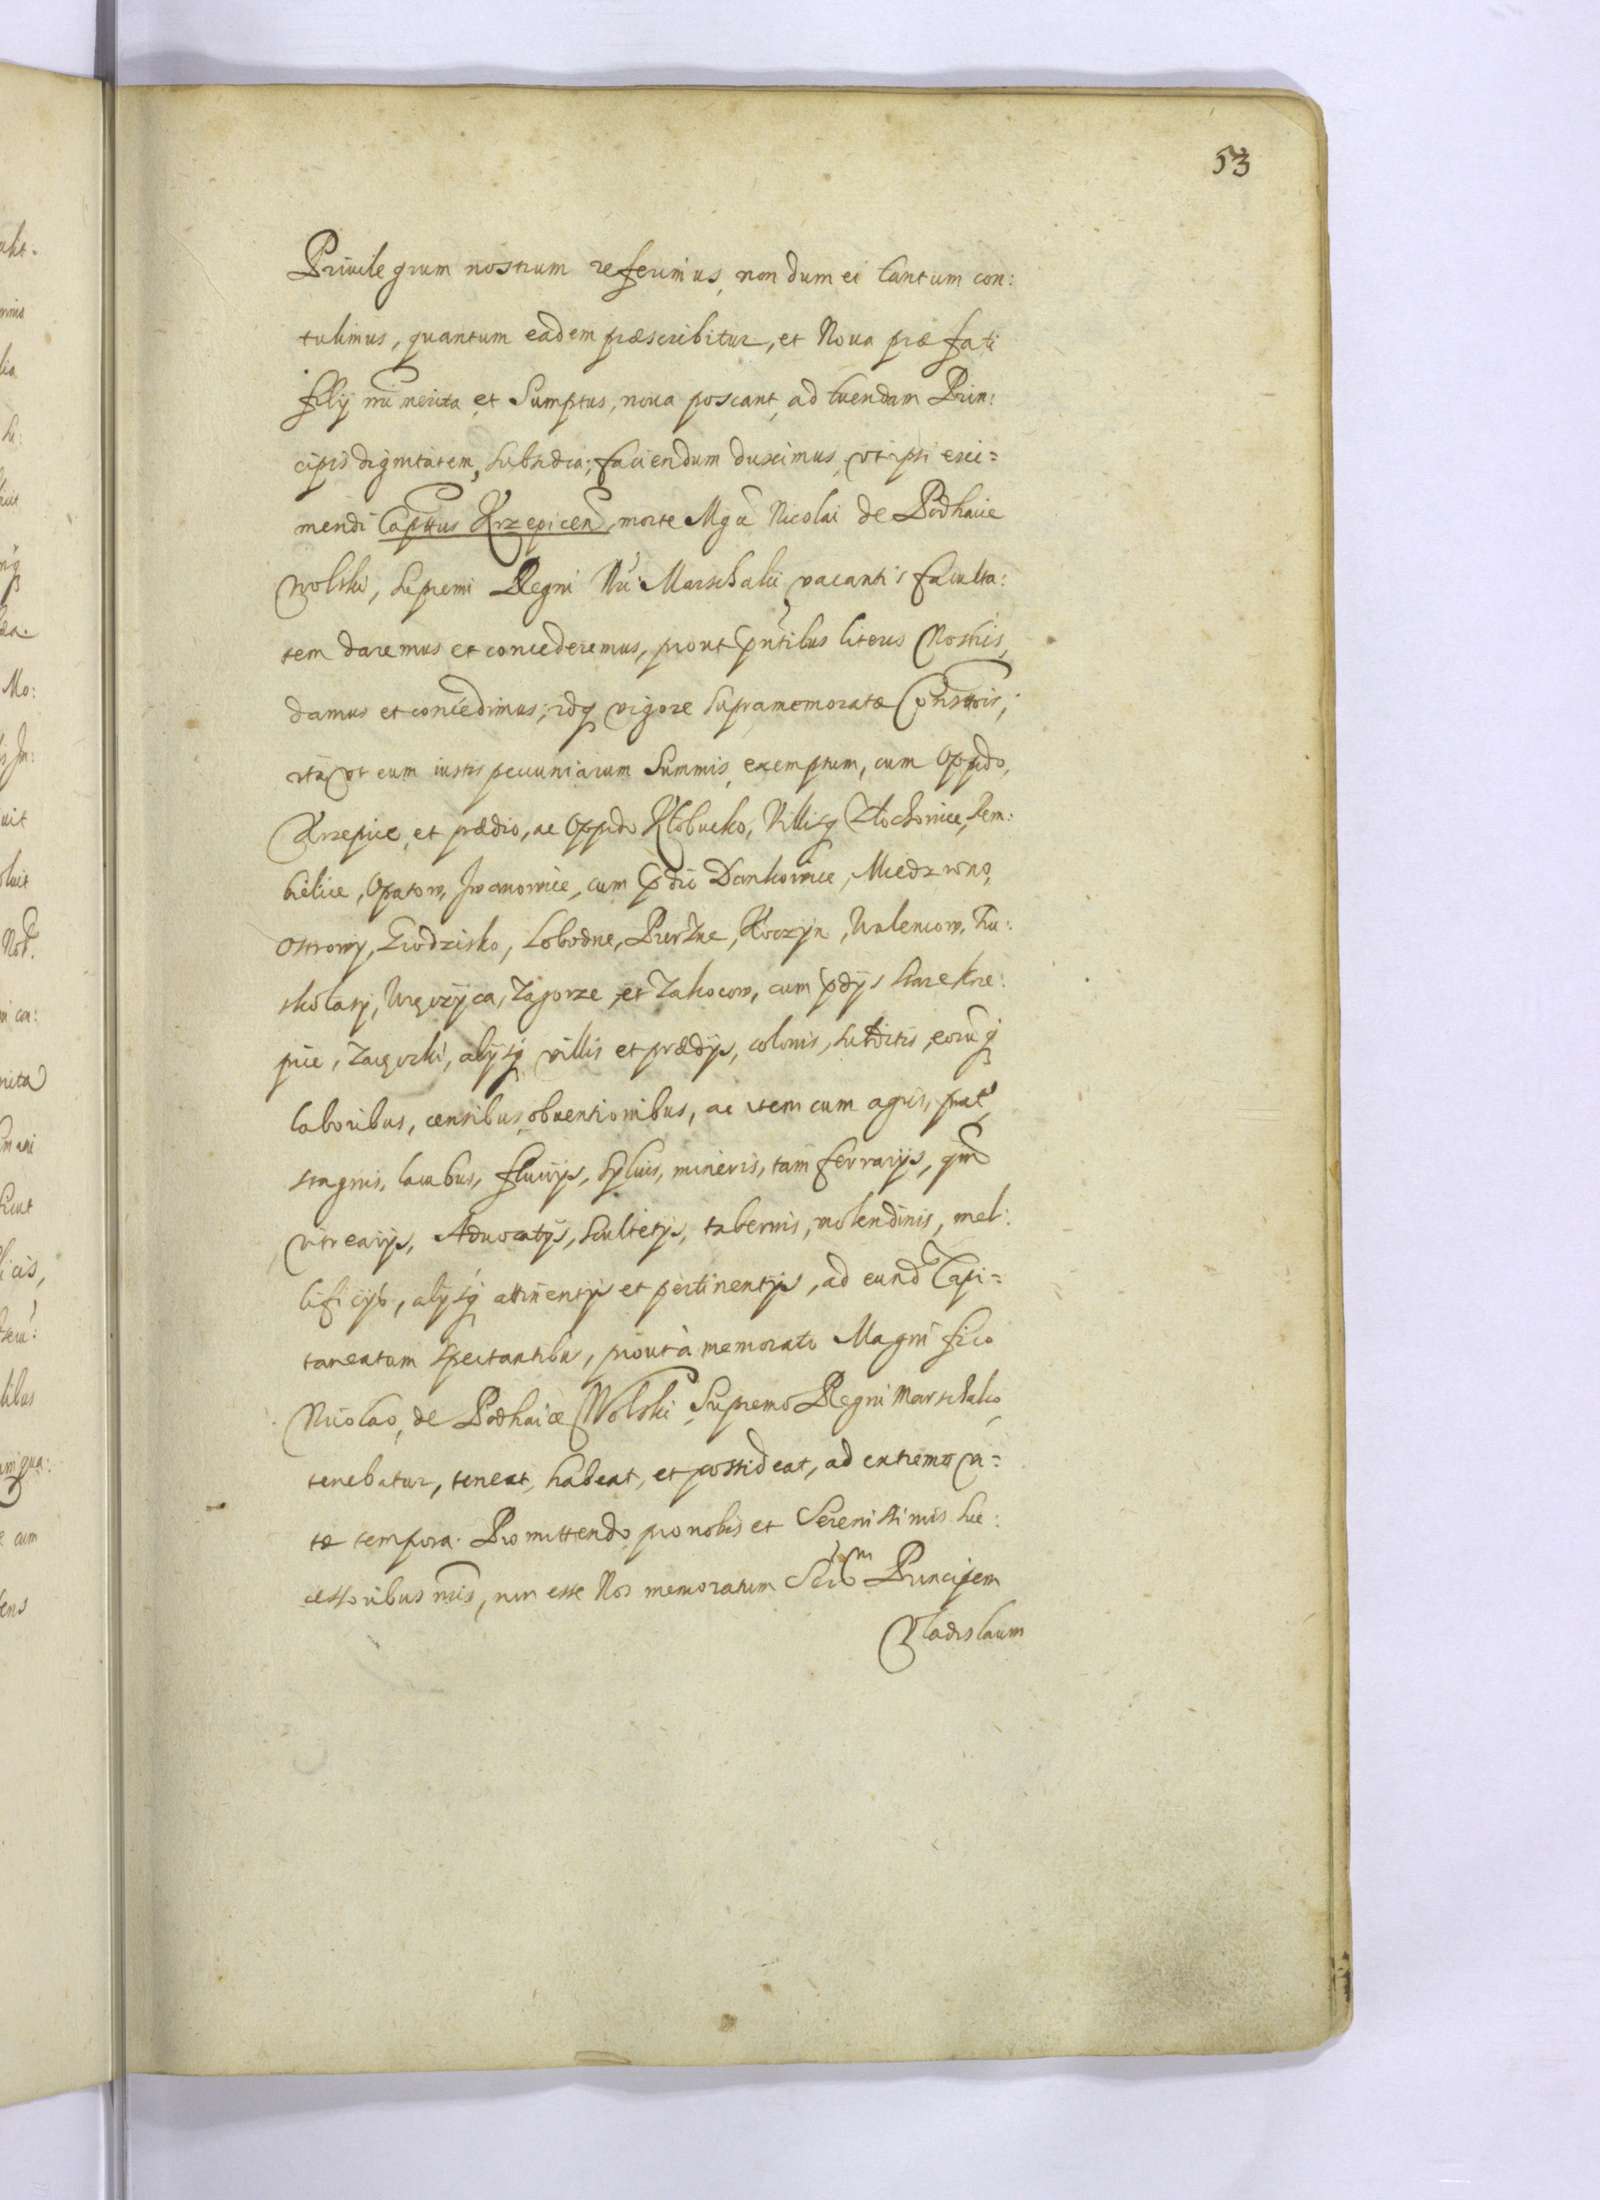 53
Priuilegium nostrum referimus, non dum ei tantum con:
tulimus, quantum eadem præscribitur, et Noua præfati
filij nri merita et Sumptus, noua poscant, ad tuendam Prin:
cipis dignitatem, subsidia; faciendum duximus, vt ipsi exi=
mendi Capttus Krzepicen, morte Mgci Nicolai de Podhaice
Wolski, Supremi Regni Nri Marschalci vacantis faculta:
tem daremus et concederemus, prout pntibus literis Nostris,
damus et concedimus; idq vigore supramemoratæ Constnis,
ita vt eum iustis pecuniarum Summis, exemptum, cum Oppido,
Krzepice, et prædio, ac Oppido Kłobucko, Villisq Złochowice,
Opatow, Iwanowice, cum pdio Dankowice, Miedzwno,
Ostrowy, Grodzisko, Lobodne, Koczyn, Walencow, Ku:
kołaty, Wręczyca, Zagorze, et Zakocow, cum pdijs Starekrze:
pice, alijsq villis et prædijs, colonis, subditis, eorumq
laboribus, censibus, obuentionibus, ac item cum agris, prat,
stagnis, lacubus, fluuijs, syluis, mineris, tam ferrarijs, qm
vitrearijs, Aduocatijs, Scultetijs, tabernis, molendinis, mel:
lificijs, alijsq attinentijs et pertinentijs, ad eund Capi=
taneatum spectantibus, prout à memorato Magnifico
Nicolao, de Podhaice Wolski Supremo Regni Marschalco,
tenebatur, teneat, habeat, et possideat, ad extrema vi=
tæ tempora. Promittendo pro nobis et Serenissimis Suc:
cessoribus nris, non esse Nos memoratum Principem
Vladislaum